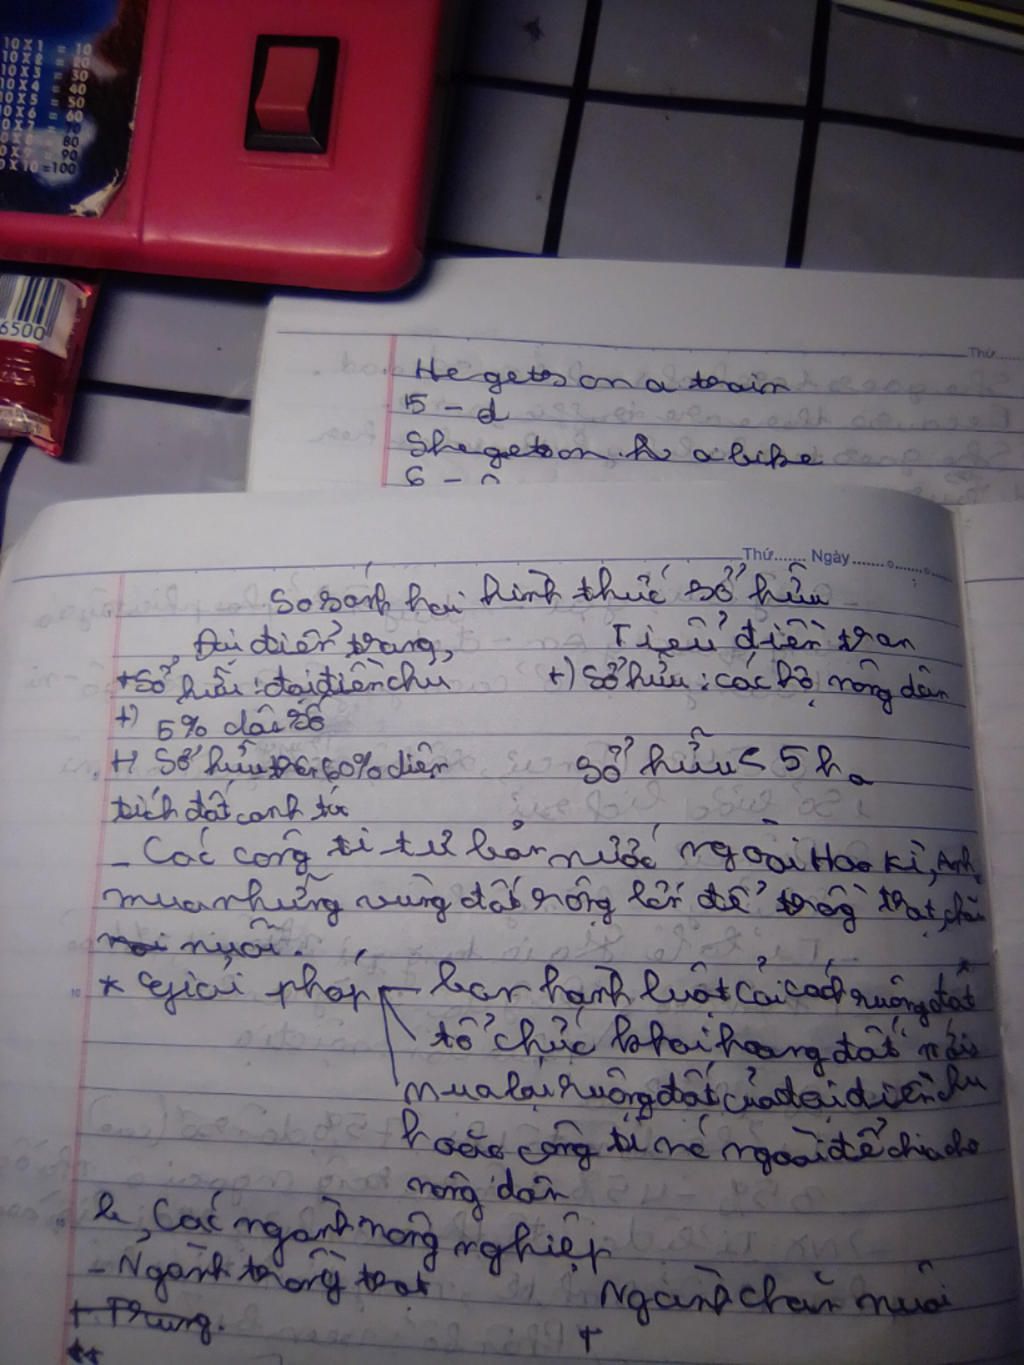 10 X 1 = 10
10 X 2 = 20
10 X 3 = 30
10 X 4 = 40
10 X 5 = 50
10 X 6 = 60
0 X 7 = 70
0 X 8 = 80
0 X 9 = 90
0 X 10 =100
6500
Thứ.....
He gets on a train
5 - d
She gets on a bike
6 -
Thứ....... Ngày
So sánh hai hình thức sở hữu
Đại điền trang, Tiểu điền tran
+ Sở hữu : đại điền chủ +) Sở hữu : các hộ nông dân
+) 5% dân số
+) Sở hữu 60% diện Sở hữu < 5 ha
tích đất canh tác
- Các công ti tư bản nước ngoài Hoa Kì, Anh,
mua những vùng đất rộng lớn để trồng trọt, chăn
nuôi.
10 * Giải pháp - ban hành luật cải cách ruộng đất
tổ chức khai hoang đất mới
mua lại ruộng đất của đại điền chủ
hoặc công ti nc ngoài để chia cho
nông dân
15 b, Các ngành nông nghiệp
- Ngành trồng trọt Ngành chăn nuôi
+ Trung. +